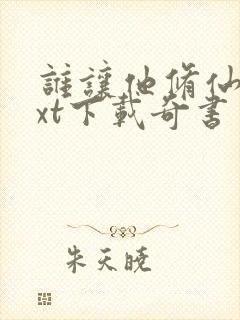 誰讓他脩仙
xt下載奇書
朱天曉